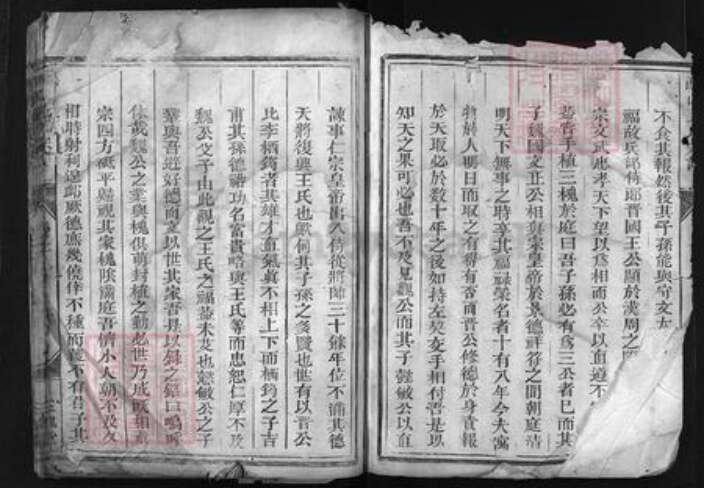 不食其報然後其子孫能與守文太
福故兵部侍郎晉國王公顯於漢周之
宗文武忠孝天下望以為相而公卒以直道不
蓋嘗手植三槐於庭曰吾子孫必有為三公者已而其
子魏國文正公相真宗皇帝於景德祥符之間朝庭清
明天下無事之時享其福祿榮名者十有八年今夫寓
物於人明日而取之有得有否而晉公修德於身責報
於天取必於數十年之後如持左契交手相付吾是以
知天之果可必也吾不及見魏公而其子懿敏公以直
諫事仁宗皇帝出入侍從將帥三十餘年位不滿其德
天將復興王氏也歟何其子孫之多賢也世有以晉公
比李栖筠者其雄才直氣真不相上下而栖筠之子吉
甫其孫德裕功名富貴略與王氏等而忠恕仁厚不及
魏公父子由此觀之王氏之福蓋未艾也懿敏公之子
鞏與吾遊好德而文以世其家吾是以錄之銘曰嗚呼
休哉魏公之業與槐俱萌封植之勤必世乃成既相真
宗四方砥平歸視其家槐陰滿庭吾儕小人朝不及夕
相時射利遑卹厥德庶幾僥倖不種而穫不有君子其